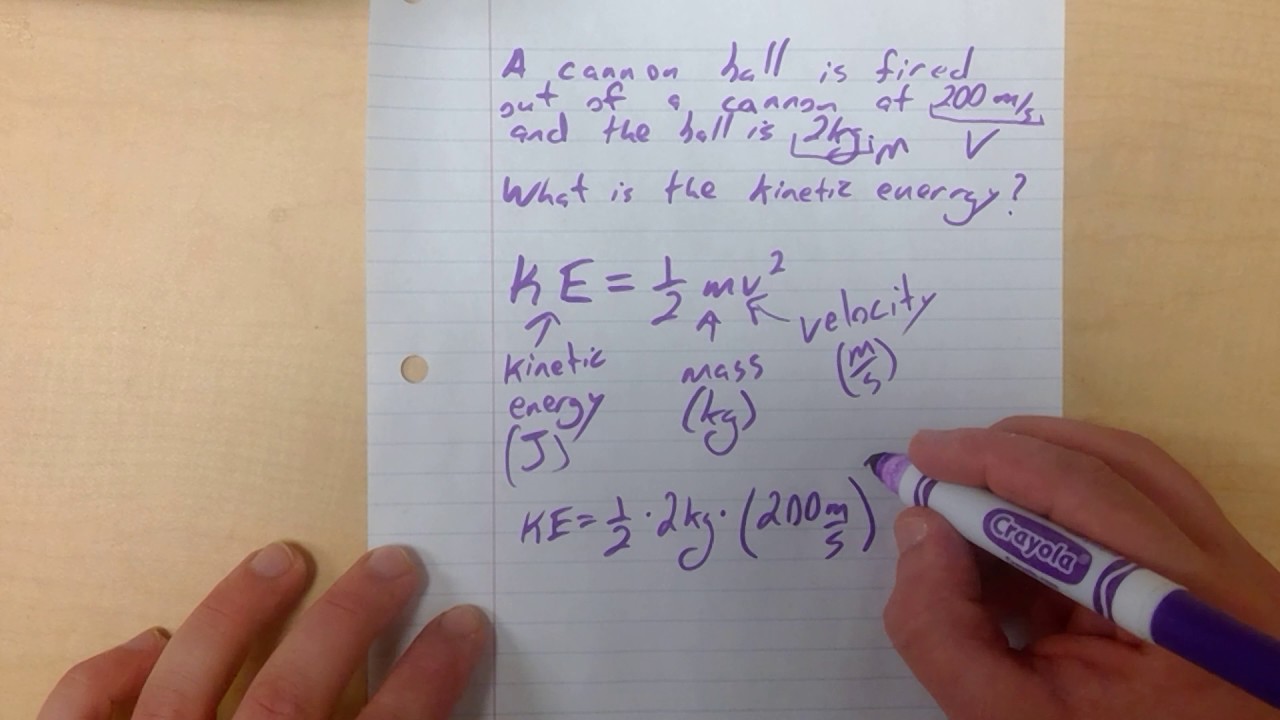 A cannon ball is fired
out of a cannon at 200 m/s
and the ball is 2kg m V
What is the kinetic energy?
KE = 1/2 mv²
velocity
kinetic mass (m/s)
energy (kg)
(J)
KE = 1/2 · 2kg · (200 m/s)
Crayola